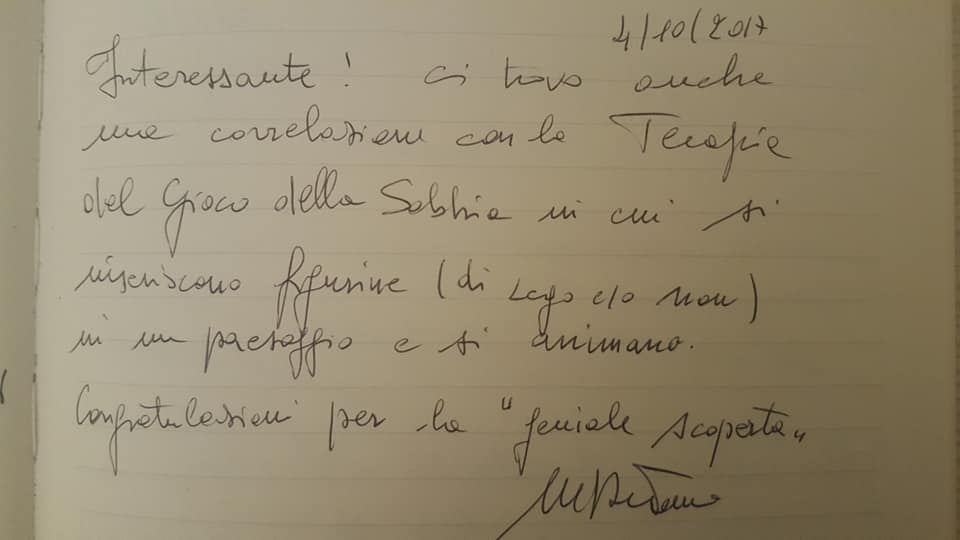 4/10/2017
Interessante! Ci trovo anche
una correlazione con la Terapia
del Gioco della Sabbia in cui si
inseriscono figurine (di Lego e/o non)
in un paesaggio e si animano.
Congratulazioni per la "geniale scoperta"